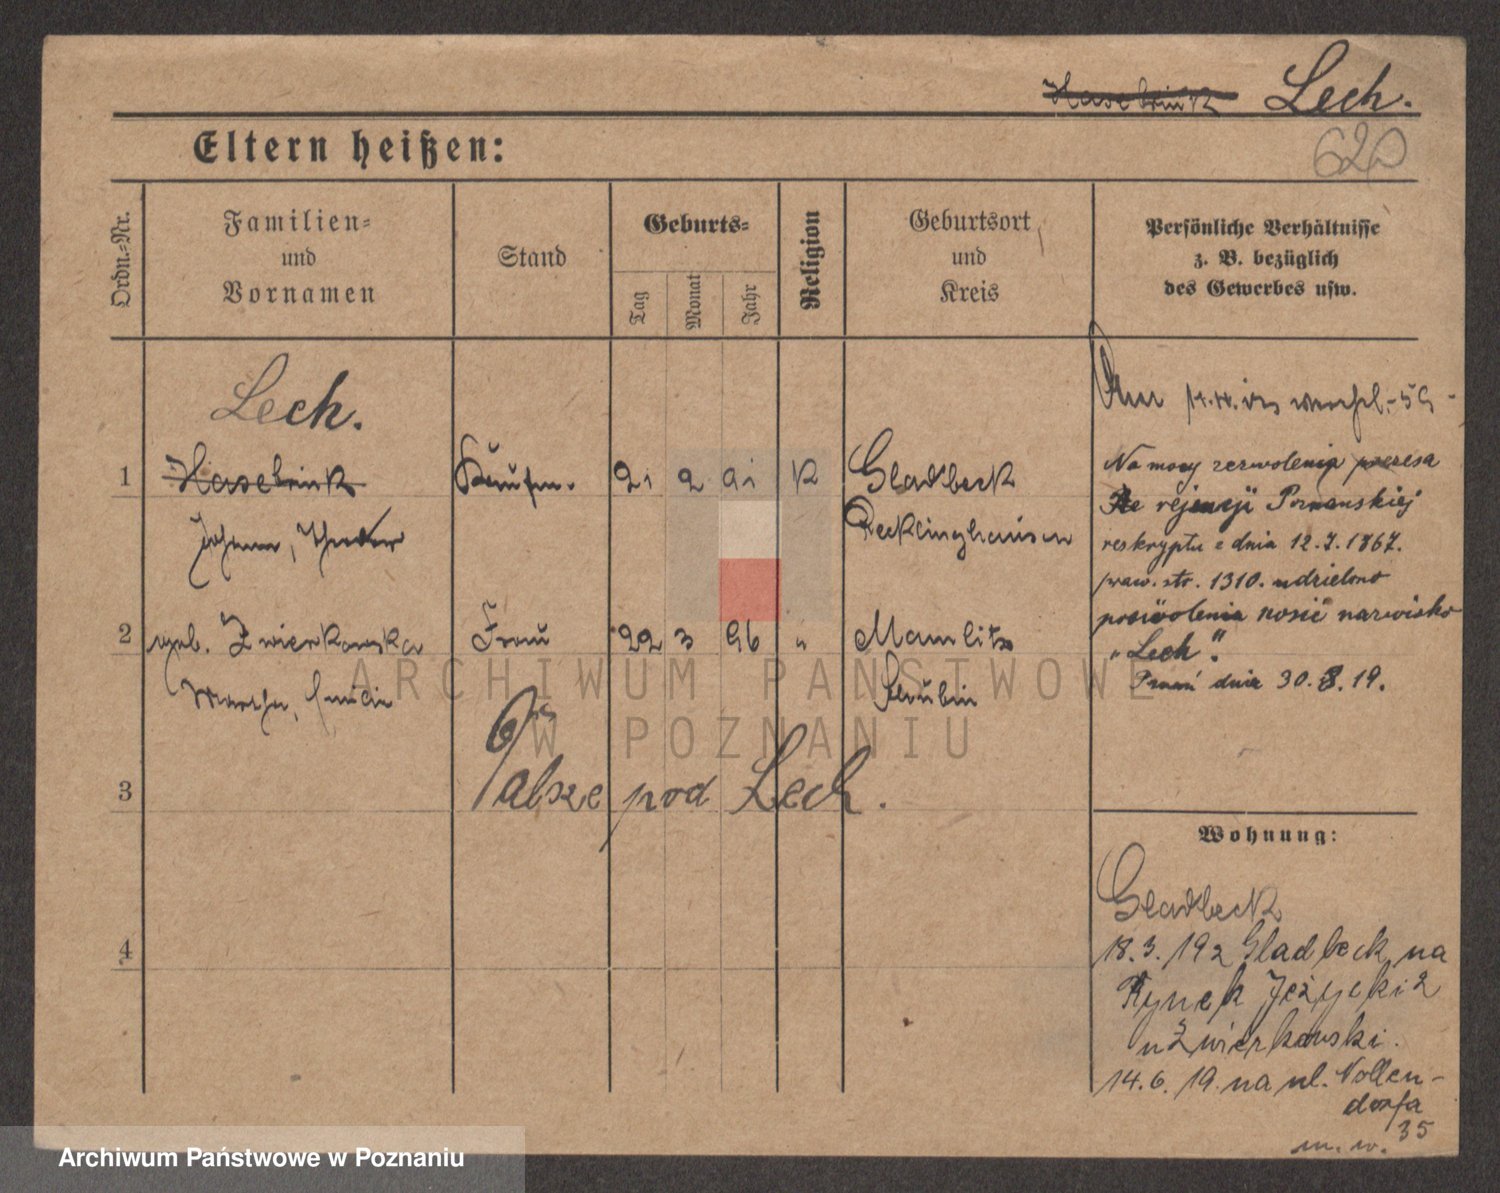 Hasebrink Lech.
620
Eltern heißen:
Ordn.-Nr.
Familien-
und
Vornamen
Stand
Geburts-
Tag
Monat
Jahr
Religion
Geburtsort
und
Kreis
Persönliche Verhältnisse
z. B. bezüglich
des Gewerbes usw.
Lech.
1 Hasebrink Kaufm. 21 2 91 K Gladbeck
Johann, Theodor Recklinghausen
2 geb. Zwierkowska Frau 22 3 96 " Mamlitz
Martha, Schubin
3
Dalsze pod Lech.
4
Na mocy zezwolenia prezesa
rejencji Poznanskiej
reskryptu z dnia 12.7.1867.
praw. str. 1310. udzielono
pozwolenia nosić nazwisko
„Lech".
dnia 30.8.19.
Wohnung:
Gladbeck
18.3.192 Gladbeck na
Rynek Jeżycki 2
u Zwierkowski.
14.6.19. na ul. Nollen-
dorfa
35
m. w.
ARCHIWUM PAŃSTWOWE
W POZNANIU
Archiwum Państwowe w Poznaniu